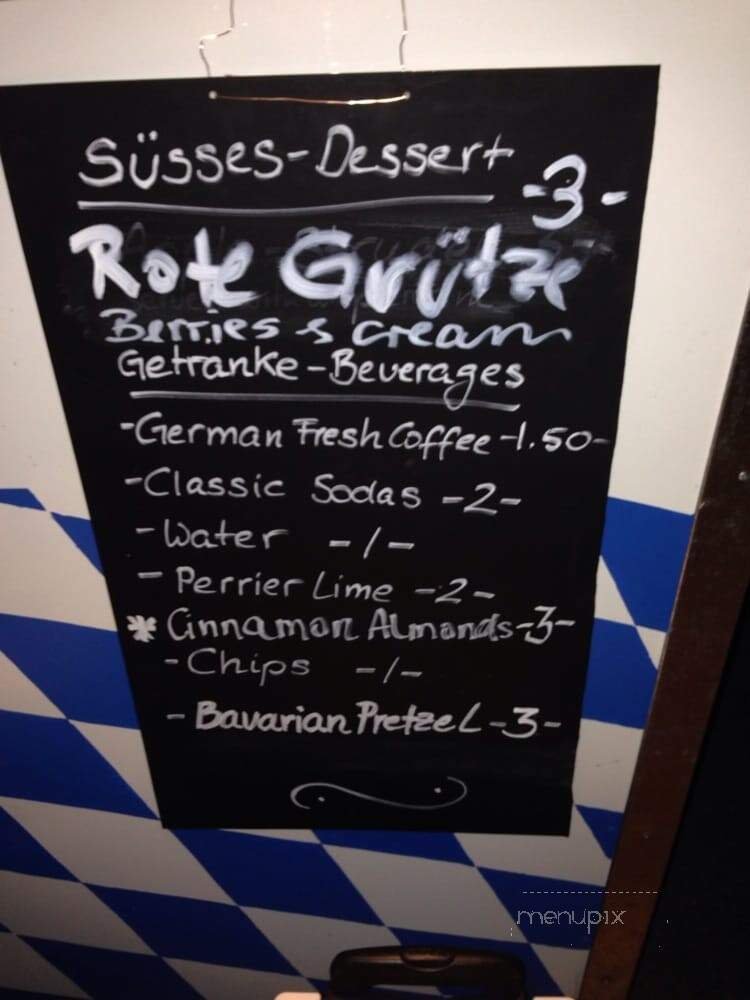 Süsses-Dessert
-3-
Rote Grütze
Berries & cream
Getranke-Beverages
-German Fresh Coffee -1.50-
-Classic Sodas -2-
-Water -/-
- Perrier Lime -2-
* Cinnamon Almonds-3-
-Chips -/-
- Bavarian Pretzel -3-
menupix